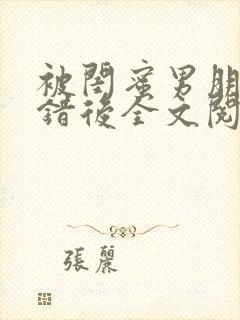 被閨蜜男朋
錯後全文閱
張麗